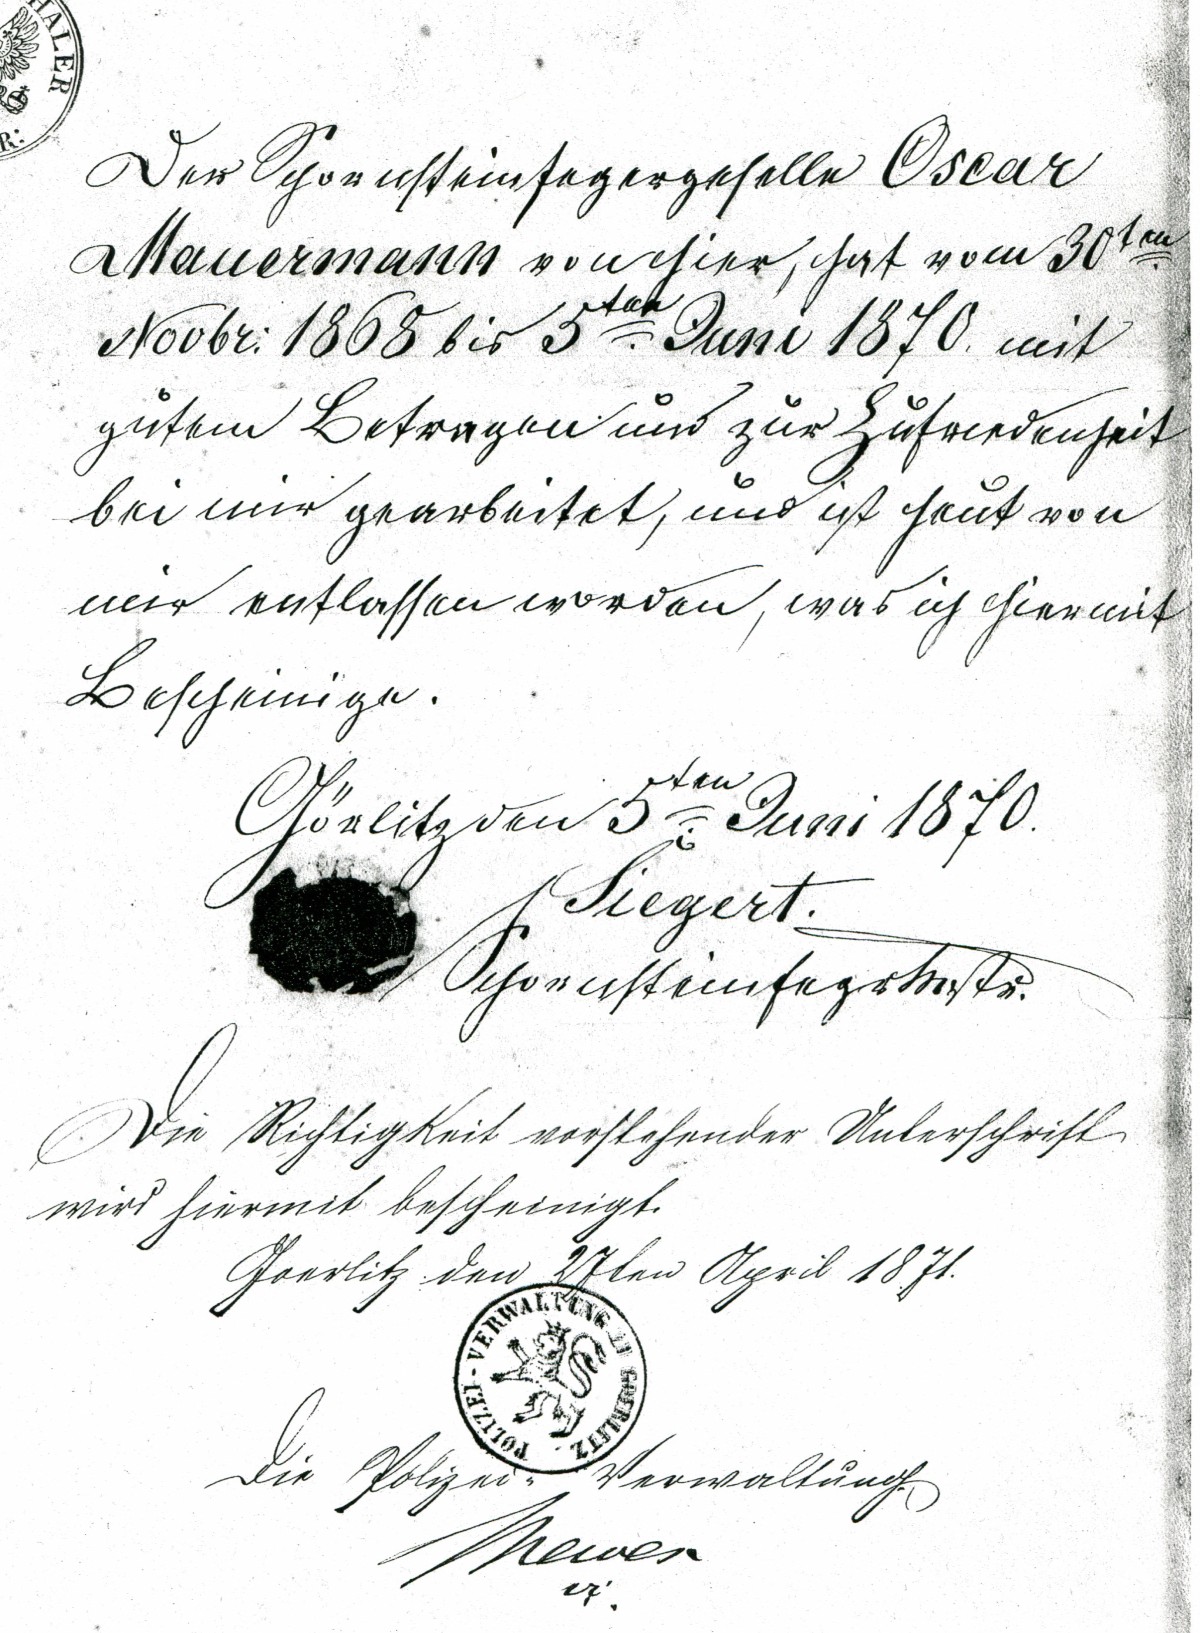 THALER
R:
Der Schornsteinfegergeselle Oscar
Mauermann von hier, hat vom 30ten
Novbr: 1868 bis 5ten Juni 1870. mit
gutem Betragen und zur Zufriedenheit
bei mir gearbeitet, und ist heut von
mir entlassen worden, was ich hiermit
Bescheinige.
Görlitz den 5ten Juni 1870.
Siegert.
Schornsteinfegrmstr.
Die Richtigkeit vorstehender Unterschrift
wird hiermit bescheinigt.
Goerlitz den 27ten April 1871.
POLIZEI-VERWALTUNG IN GOERLITZ
Die Polizei-Verwaltung.